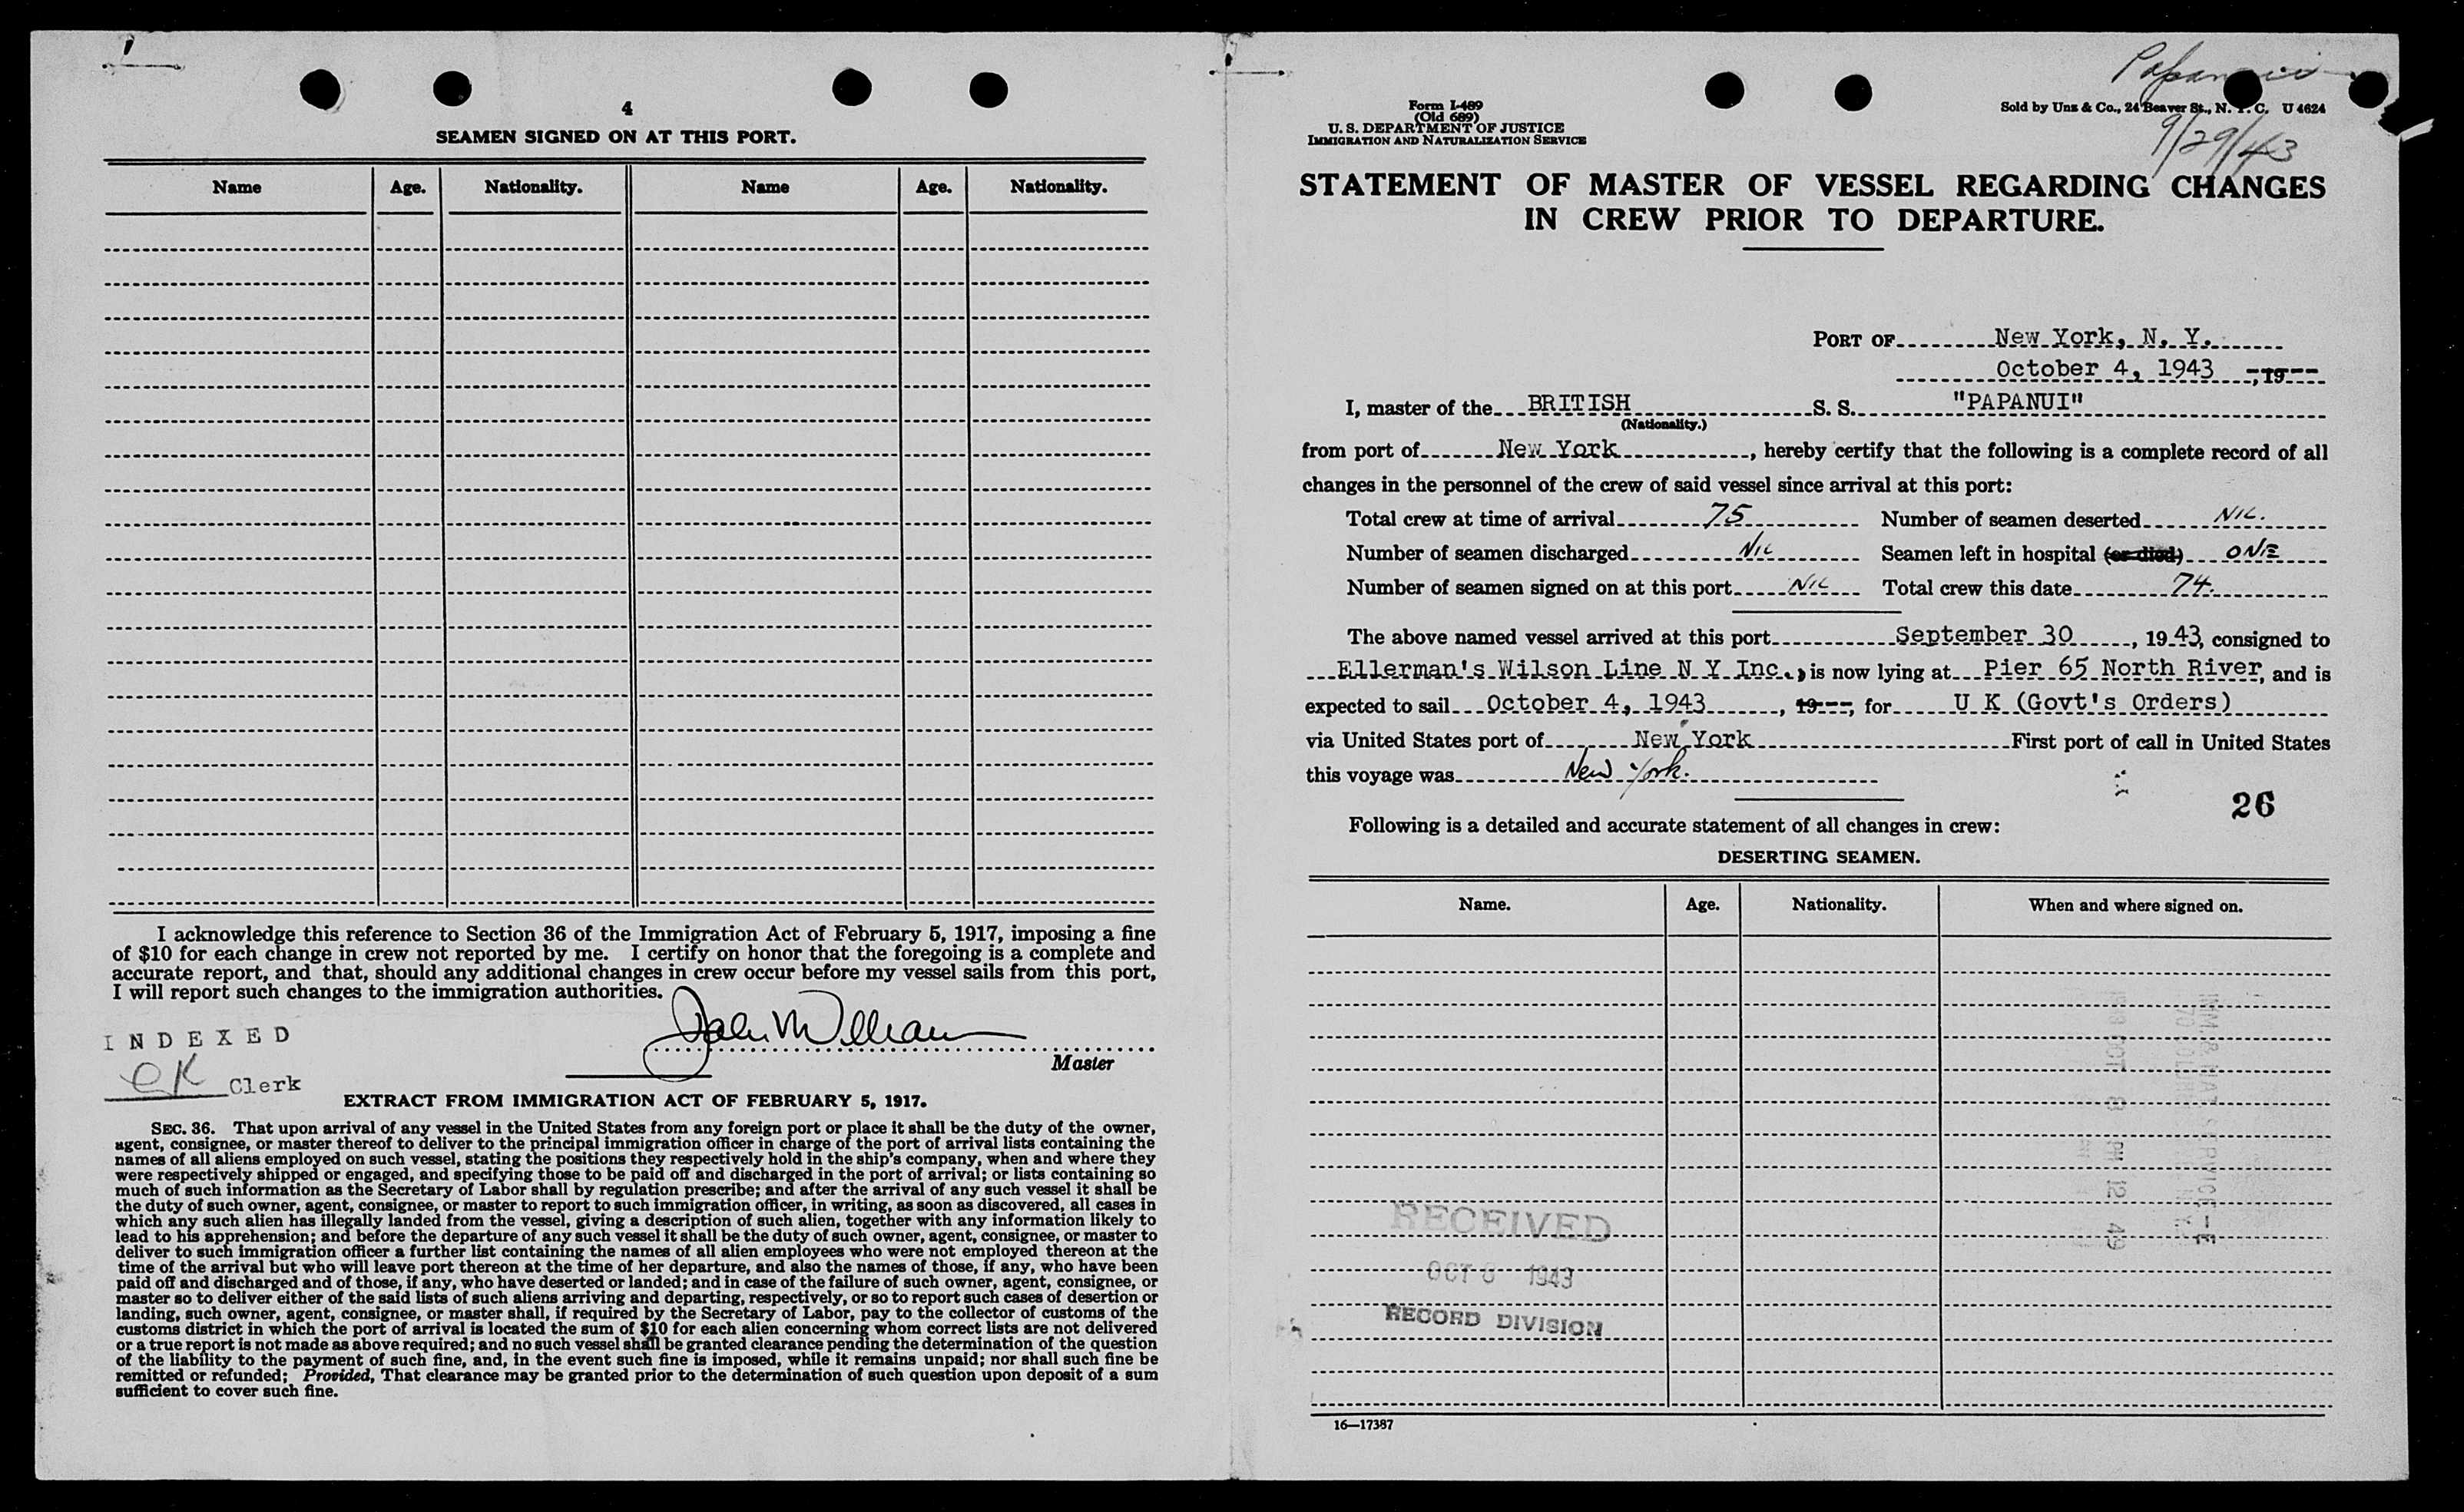 4
SEAMEN SIGNED ON AT THIS PORT.
Name Age. Nationality. Name Age. Nationality.
I acknowledge this reference to Section 36 of the Immigration Act of February 5, 1917, imposing a fine
of $10 for each change in crew not reported by me. I certify on honor that the foregoing is a complete and
accurate report, and that, should any additional changes in crew occur before my vessel sails from this port,
I will report such changes to the immigration authorities.
INDEXED
Master
CK Clerk
EXTRACT FROM IMMIGRATION ACT OF FEBRUARY 5, 1917.
SEC. 36. That upon arrival of any vessel in the United States from any foreign port or place it shall be the duty of the owner,
agent, consignee, or master thereof to deliver to the principal immigration officer in charge of the port of arrival lists containing the
names of all aliens employed on such vessel, stating the positions they respectively hold in the ship's company, when and where they
were respectively shipped or engaged, and specifying those to be paid off and discharged in the port of arrival; or lists containing so
much of such information as the Secretary of Labor shall by regulation prescribe; and after the arrival of any such vessel it shall be
the duty of such owner, agent, consignee, or master to report to such immigration officer, in writing, as soon as discovered, all cases in
which any such alien has illegally landed from the vessel, giving a description of such alien, together with any information likely to
lead to his apprehension; and before the departure of any such vessel it shall be the duty of such owner, agent, consignee, or master to
deliver to such immigration officer a further list containing the names of all alien employees who were not employed thereon at the
time of the arrival but who will leave port thereon at the time of her departure, and also the names of those, if any, who have been
paid off and discharged and of those, if any, who have deserted or landed; and in case of the failure of such owner, agent, consignee, or
master so to deliver either of the said lists of such aliens arriving and departing, respectively, or so to report such cases of desertion or
landing, such owner, agent, consignee, or master shall, if required by the Secretary of Labor, pay to the collector of customs of the
customs district in which the port of arrival is located the sum of $10 for each alien concerning whom correct lists are not delivered
or a true report is not made as above required; and no such vessel shall be granted clearance pending the determination of the question
of the liability to the payment of such fine, and, in the event such fine is imposed, while it remains unpaid; nor shall such fine be
remitted or refunded; Provided, That clearance may be granted prior to the determination of such question upon deposit of a sum
sufficient to cover such fine.
Papanui
Form I-489
(Old 689)
U. S. DEPARTMENT OF JUSTICE
IMMIGRATION AND NATURALIZATION SERVICE
Sold by Unz & Co., 24 Beaver St., N. Y. C. U 4624
9/29/43
STATEMENT OF MASTER OF VESSEL REGARDING CHANGES
IN CREW PRIOR TO DEPARTURE.
PORT OF New York, N. Y.
October 4, 1943, 19
I, master of the BRITISH S. S. "PAPANUI"
(Nationality.)
from port of New York, hereby certify that the following is a complete record of all
changes in the personnel of the crew of said vessel since arrival at this port:
Total crew at time of arrival 75 Number of seamen deserted NIL.
Number of seamen discharged NIL Seamen left in hospital (or died) ONE
Number of seamen signed on at this port NIL Total crew this date 74.
The above named vessel arrived at this port September 30, 1943, consigned to
Ellerman's Wilson Line N Y Inc., is now lying at Pier 65 North River, and is
expected to sail October 4, 1943, 19, for U K (Govt's Orders)
via United States port of New York First port of call in United States
this voyage was New York.
26
Following is a detailed and accurate statement of all changes in crew:
DESERTING SEAMEN.
Name. Age. Nationality. When and where signed on.
RECEIVED
OCT 8 1943
RECORD DIVISION
16—17387